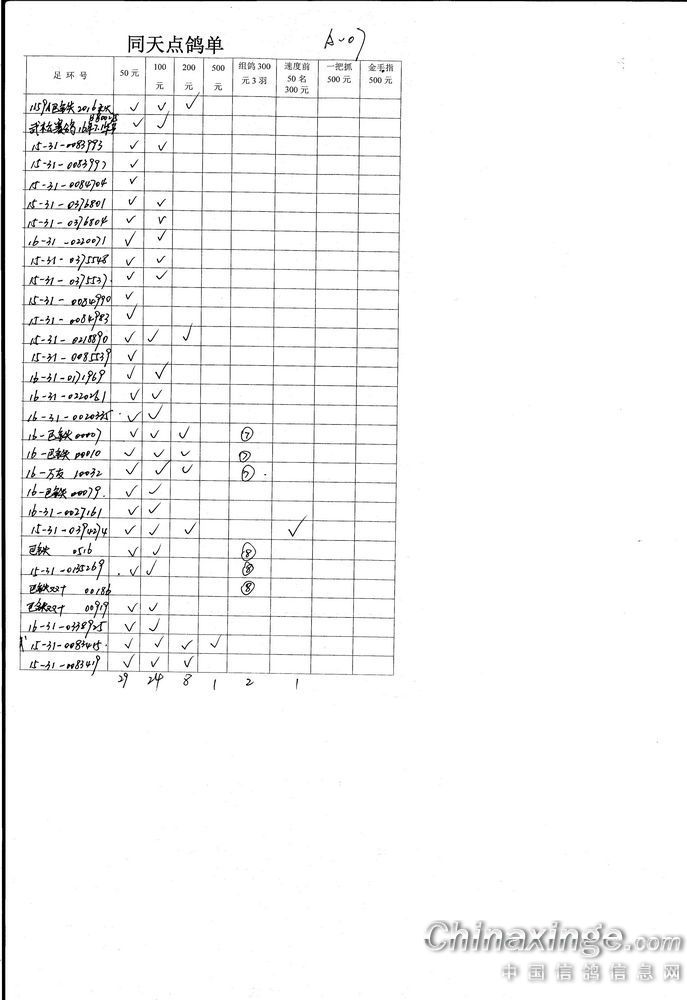 同天点鸽单
A-07
足环号 50元 100元 200元 500元 组鸽300元3羽 速度前50名300元 一把抓500元 金手指500元
✓ ✓ ✓
✓ ✓
15-31-0083993 ✓ ✓
15-31-0083997 ✓
15-31-0084704 ✓
15-31-0376801 ✓ ✓
15-31-0376804 ✓ ✓
16-31-0220071 ✓ ✓
15-31-0375548 ✓ ✓
15-31-0375537 ✓ ✓
15-31-0084990 ✓
15-31-0084983 ✓
15-31-0218890 ✓ ✓ ✓
15-31-0085539 ✓
16-31-0171969 ✓ ✓
16-31-0220261 ✓ ✓
16-31-0020335 ✓ ✓
16- 00007 ✓ ✓ ✓ ⑦
16- 00010 ✓ ✓ ✓ ⑦
16-万友 10032 ✓ ✓ ✓ ⑦
16- 00079 ✓ ✓
16-31-0027161 ✓ ✓
15-31-0394274 ✓ ✓ ✓ ✓
0516 ✓ ✓ ⑧
15-31-0135269 ✓ ✓ ⑧
00186 ⑧
00919 ✓ ✓
16-31-0338925 ✓ ✓
15-31-0083415 ✓ ✓ ✓ ✓
15-31-0083419 ✓ ✓ ✓
29 24 8 1 2 1
Chinaxinge.com
中国信鸽信息网